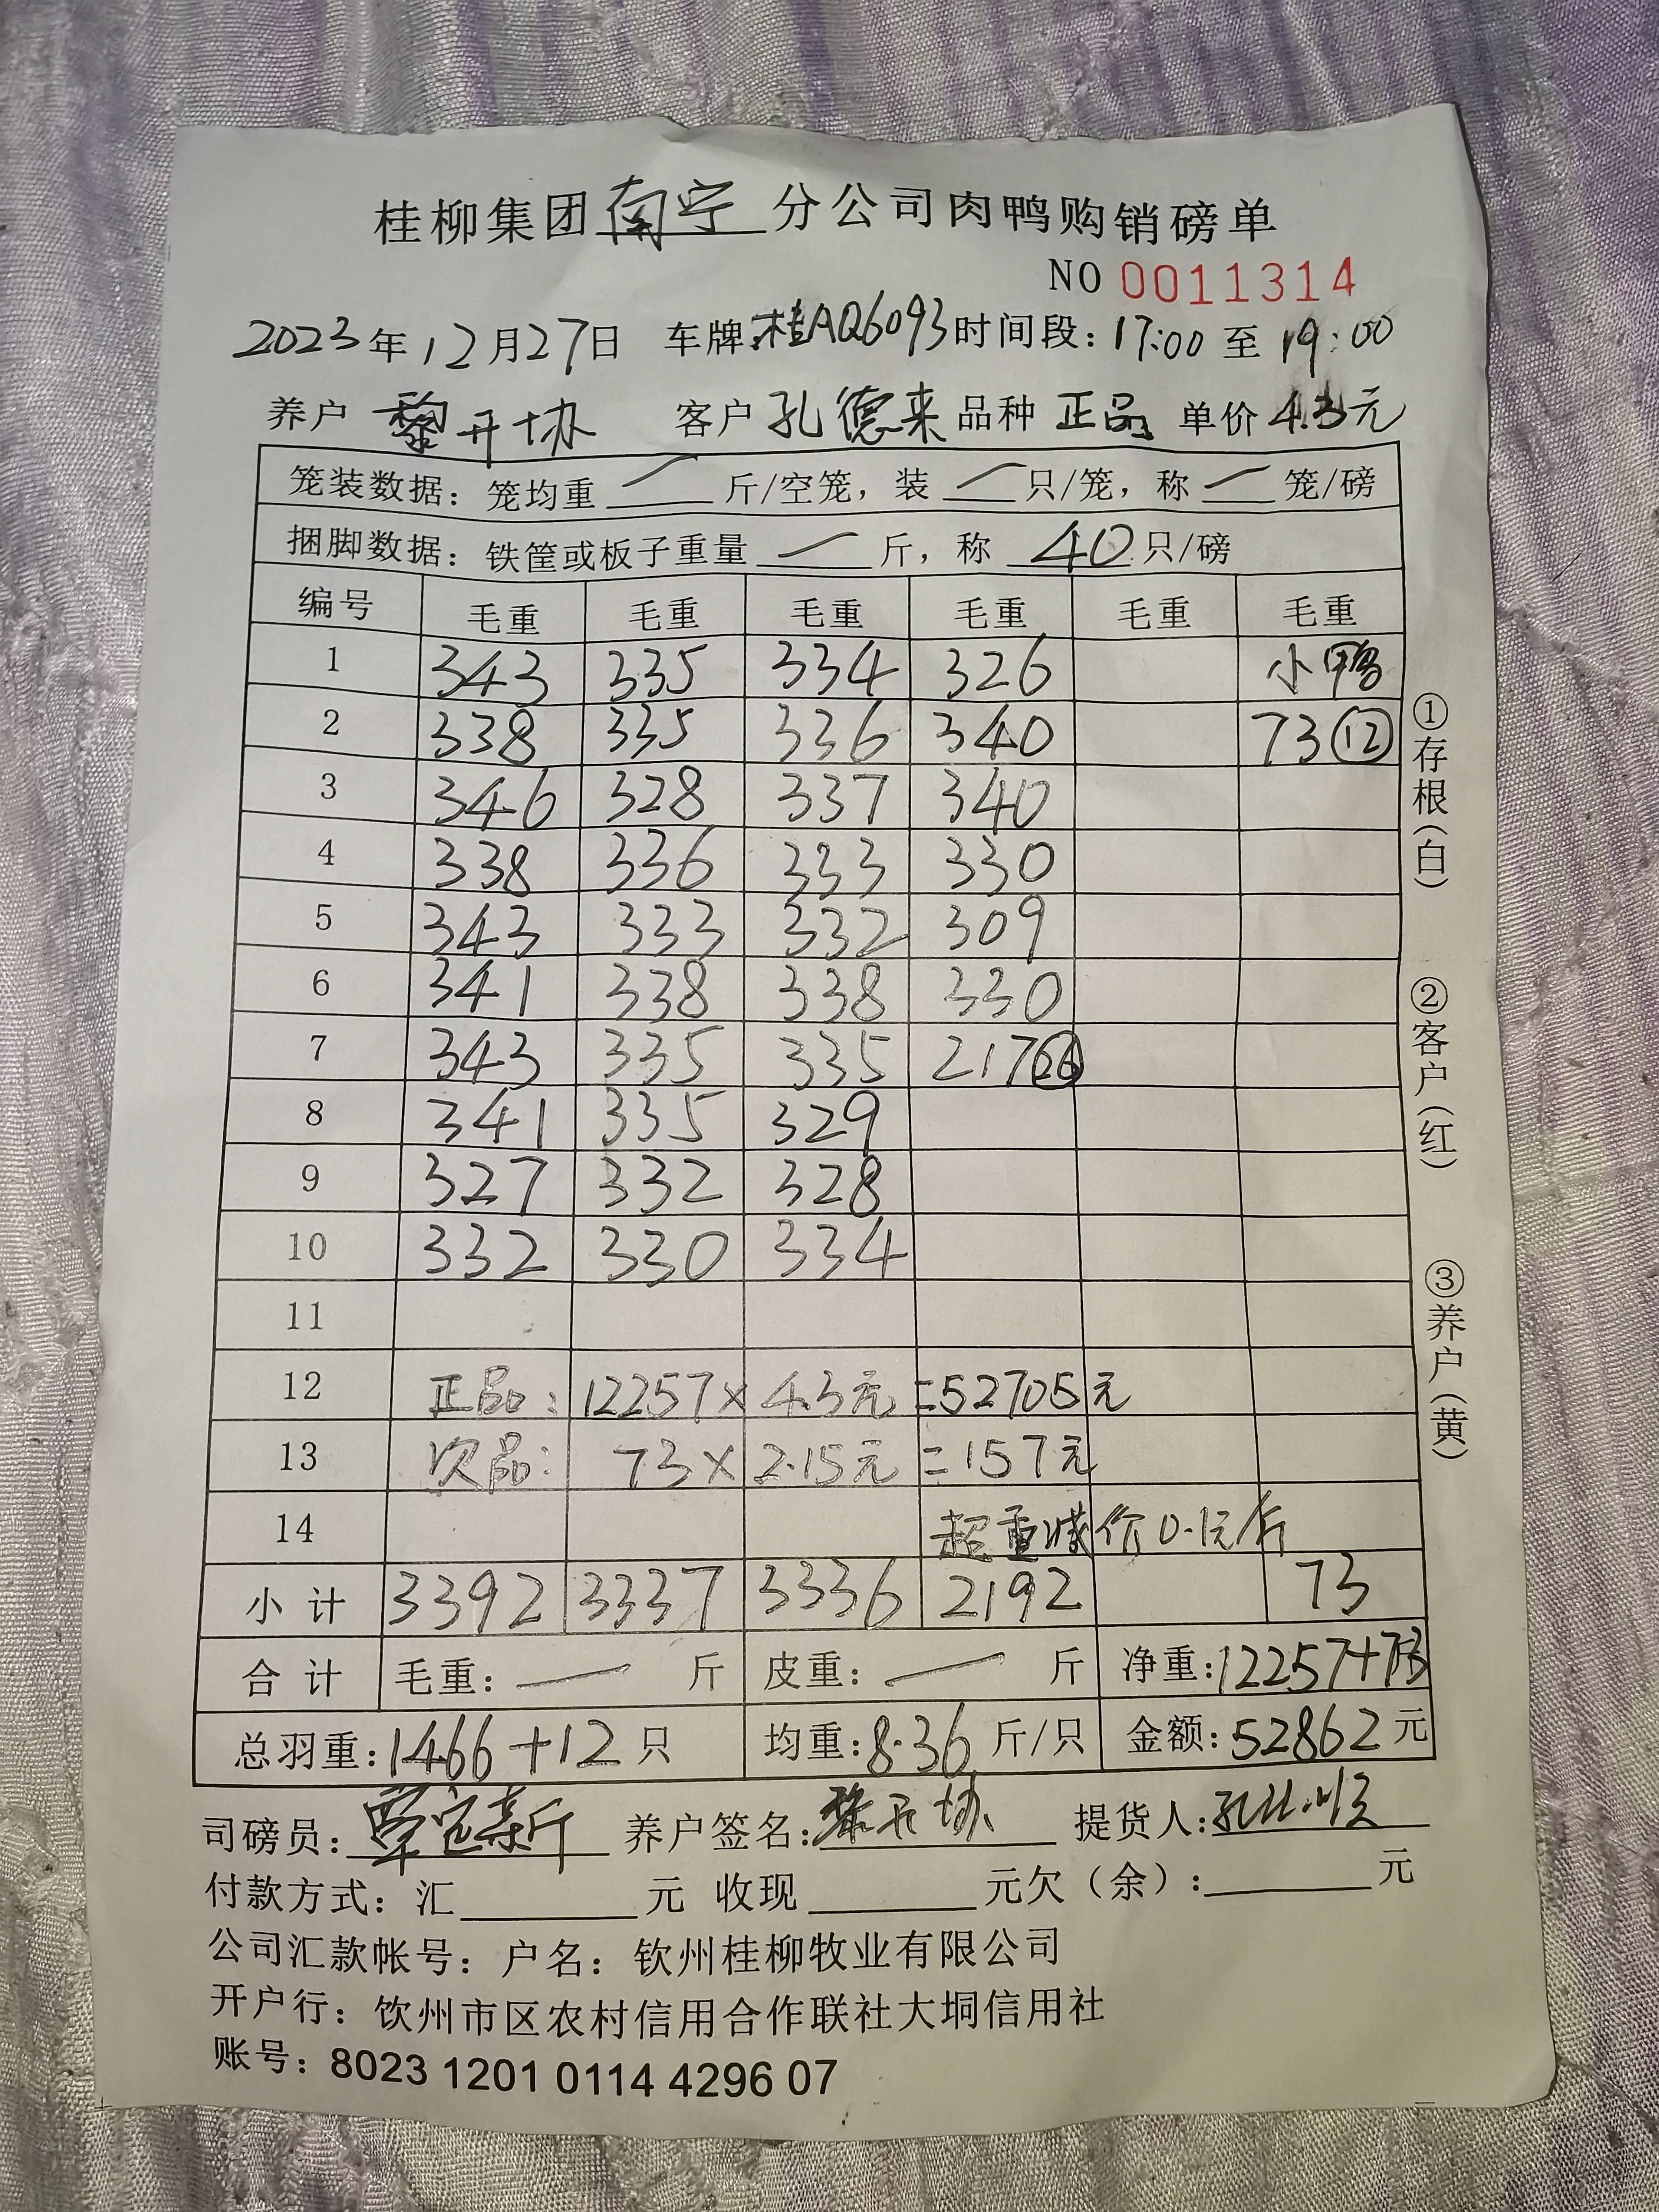 桂柳集团南宁分公司肉鸭购销磅单
NO 0011314
2023年12月27日 车牌:桂AQ6093 时间段:17:00至19:00
养户 黎开协 客户 孔德来 品种 正品 单价 4.3元
笼装数据:笼均重 一 斤/空笼,装 一 只/笼,称 一 笼/磅
捆脚数据:铁筐或板子重量 一 斤,称 40 只/磅
编号 毛重 毛重 毛重 毛重 毛重 毛重
1 343 335 334 326 小鸭
2 338 335 336 340 73⑫
3 346 328 337 340
4 338 336 333 330
5 343 333 332 309
6 341 338 338 330
7 343 335 335 217㉖
8 341 335 329
9 327 332 328
10 332 330 334
11
12 正品: 12257×4.3元=52705元
13 次品: 73×2.15元=157元
14 超重减价0.1元/斤
小计 3392 3337 3336 2192 73
合计 毛重: 一 斤 皮重: 一 斤 净重:12257+73
总羽重:1466+12只 均重:8.36斤/只 金额:52862元
司磅员: 养户签名:黎开协 提货人:
付款方式:汇 元 收现 元欠(余): 元
公司汇款帐号:户名:钦州桂柳牧业有限公司
开户行:钦州市区农村信用合作联社大垌信用社
账号:8023 1201 0114 4296 07
①存根(白) ②客户(红) ③养户(黄)